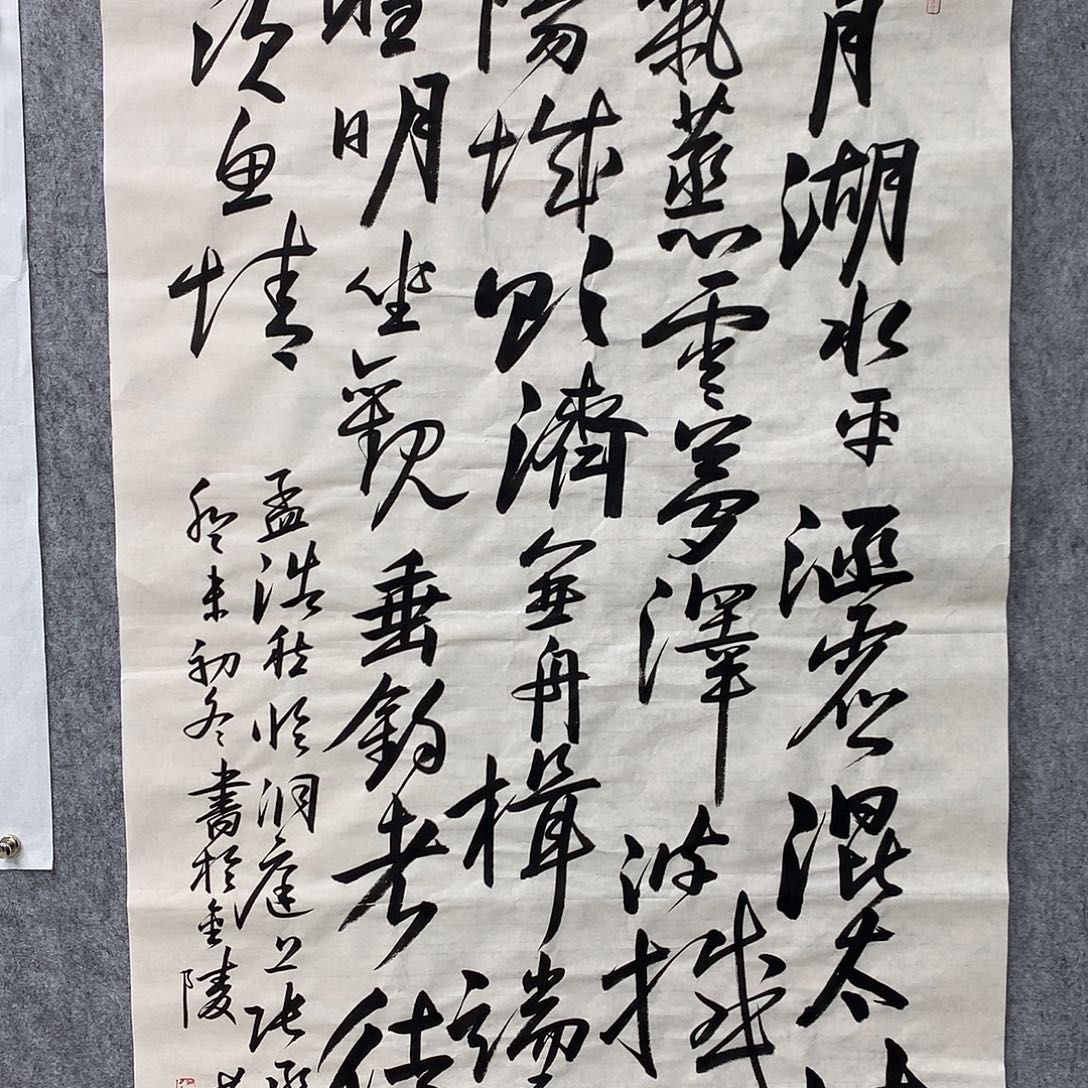 月湖水平涵虛混太
氣蒸雲夢澤波撼
陽城欲濟無舟楫端
聖明坐觀垂釣者徒
羨魚情
孟浩然臨洞庭上張丞
癸未初冬書於金陵